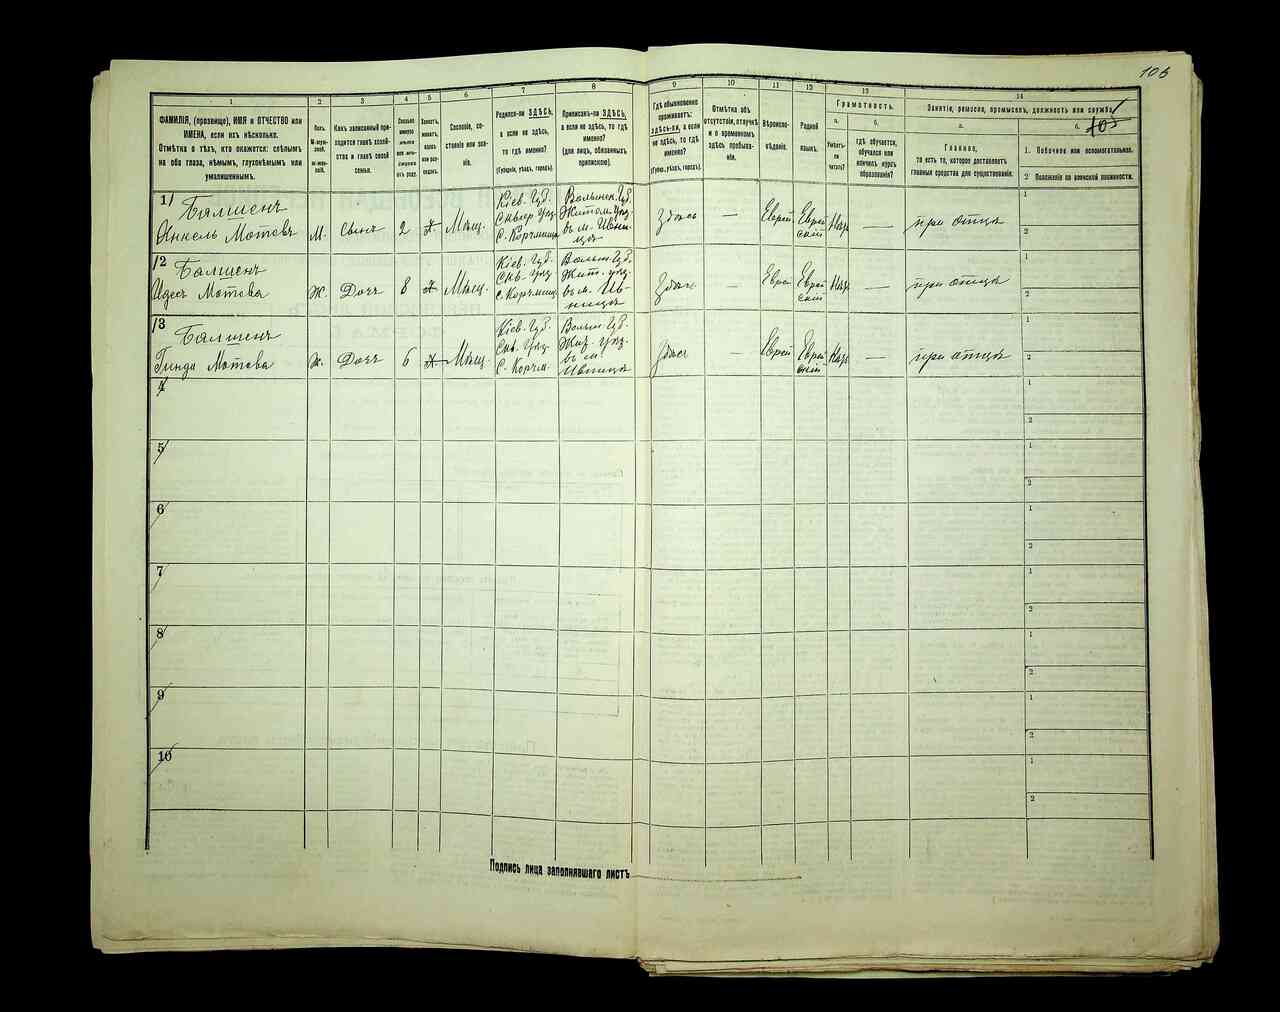 106
105
1 2 3 4 5 6 7 8 9 10 11 12 13 14
ФАМИЛІЯ, (прозвище), ИМЯ и ОТЧЕСТВО или ИМЕНА, если ихъ нѣсколько.
Отмѣтка о тѣхъ, кто окажется: слѣпымъ на оба глаза, нѣмымъ, глухонѣмымъ или умалишеннымъ.
Полъ.
М-мужской.
Ж-женскій.
Какъ записанный приходится главѣ хозяйства и главѣ своей семьи.
Сословіе, состояніе или званіе.
Родился-ли ЗДѢСЬ, а если не здѣсь, то гдѣ именно?
(Губернія, уѣздъ, городъ).
Приписанъ-ли ЗДѢСЬ, а если не здѣсь, то гдѣ именно?
(для лицъ, обязанныхъ припискою).
Гдѣ обыкновенно проживаетъ: ЗДѢСЬ-ли, а если не здѣсь, то гдѣ именно?
(Губерн., уѣздъ, городъ).
Отмѣтка объ отсутствіи, отлучкѣ и о временномъ здѣсь пребываніи.
Вѣроисповѣданіе.
Родной языкъ.
Грамотность.
а.
Умѣетъ-ли читать?
б.
гдѣ обучается, обучался или кончилъ курсъ образованія?
Занятіе, ремесло, промыселъ, должность или служба.
а.
Главное,
то есть то, которое доставляетъ главныя средства для существованія.
б.
1. Побочное или вспомогательное.
2 Положеніе по воинской повинности.
1 Балшенъ
Янкель Мотевъ М. Сынъ 2 Х Мѣщ.
Кіев. Губ.
Сквир. Уѣз.
Волынск. Губ.
Житом. Уѣз.
въ м. Ивницы
Здѣсь — Еврей Еврейскій — при отцѣ
1
2
2 Балшенъ
Идес Мотева Ж. Дочь 8 Х Мѣщ.
Кіев. Губ.
Скв. Уѣз.
Волын. Губ.
Жит. уѣз.
въ м. Ивницы
Здѣсь — Еврей Еврейскій — при отцѣ
1
2
3 Балшенъ
Гинда Мотева Ж. Дочь 6 Х Мѣщ.
Кіев. Губ.
Скв. Уѣз.
Волын. Губ.
Жит. Уѣз.
въ м. Ивницы
Здѣсь — Еврей Еврейскій — при отцѣ
1
2
4 1
2
5 1
2
6 1
2
7 1
2
8 1
2
9 1
2
10 1
2
Подпись лица заполнявшаго листъ